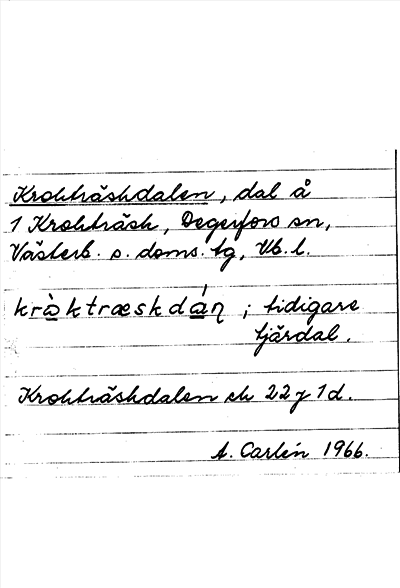 Krokträskdalen, dal å
1 Krokträsk, Degerfors sn,
Västerb. s. doms. tg, Vb. l.
kràktræskdá̱ƞ ; tidigare
tjärdal.
Krokträskdalen ek 22 y 1 d.
A. Carlén 1966.